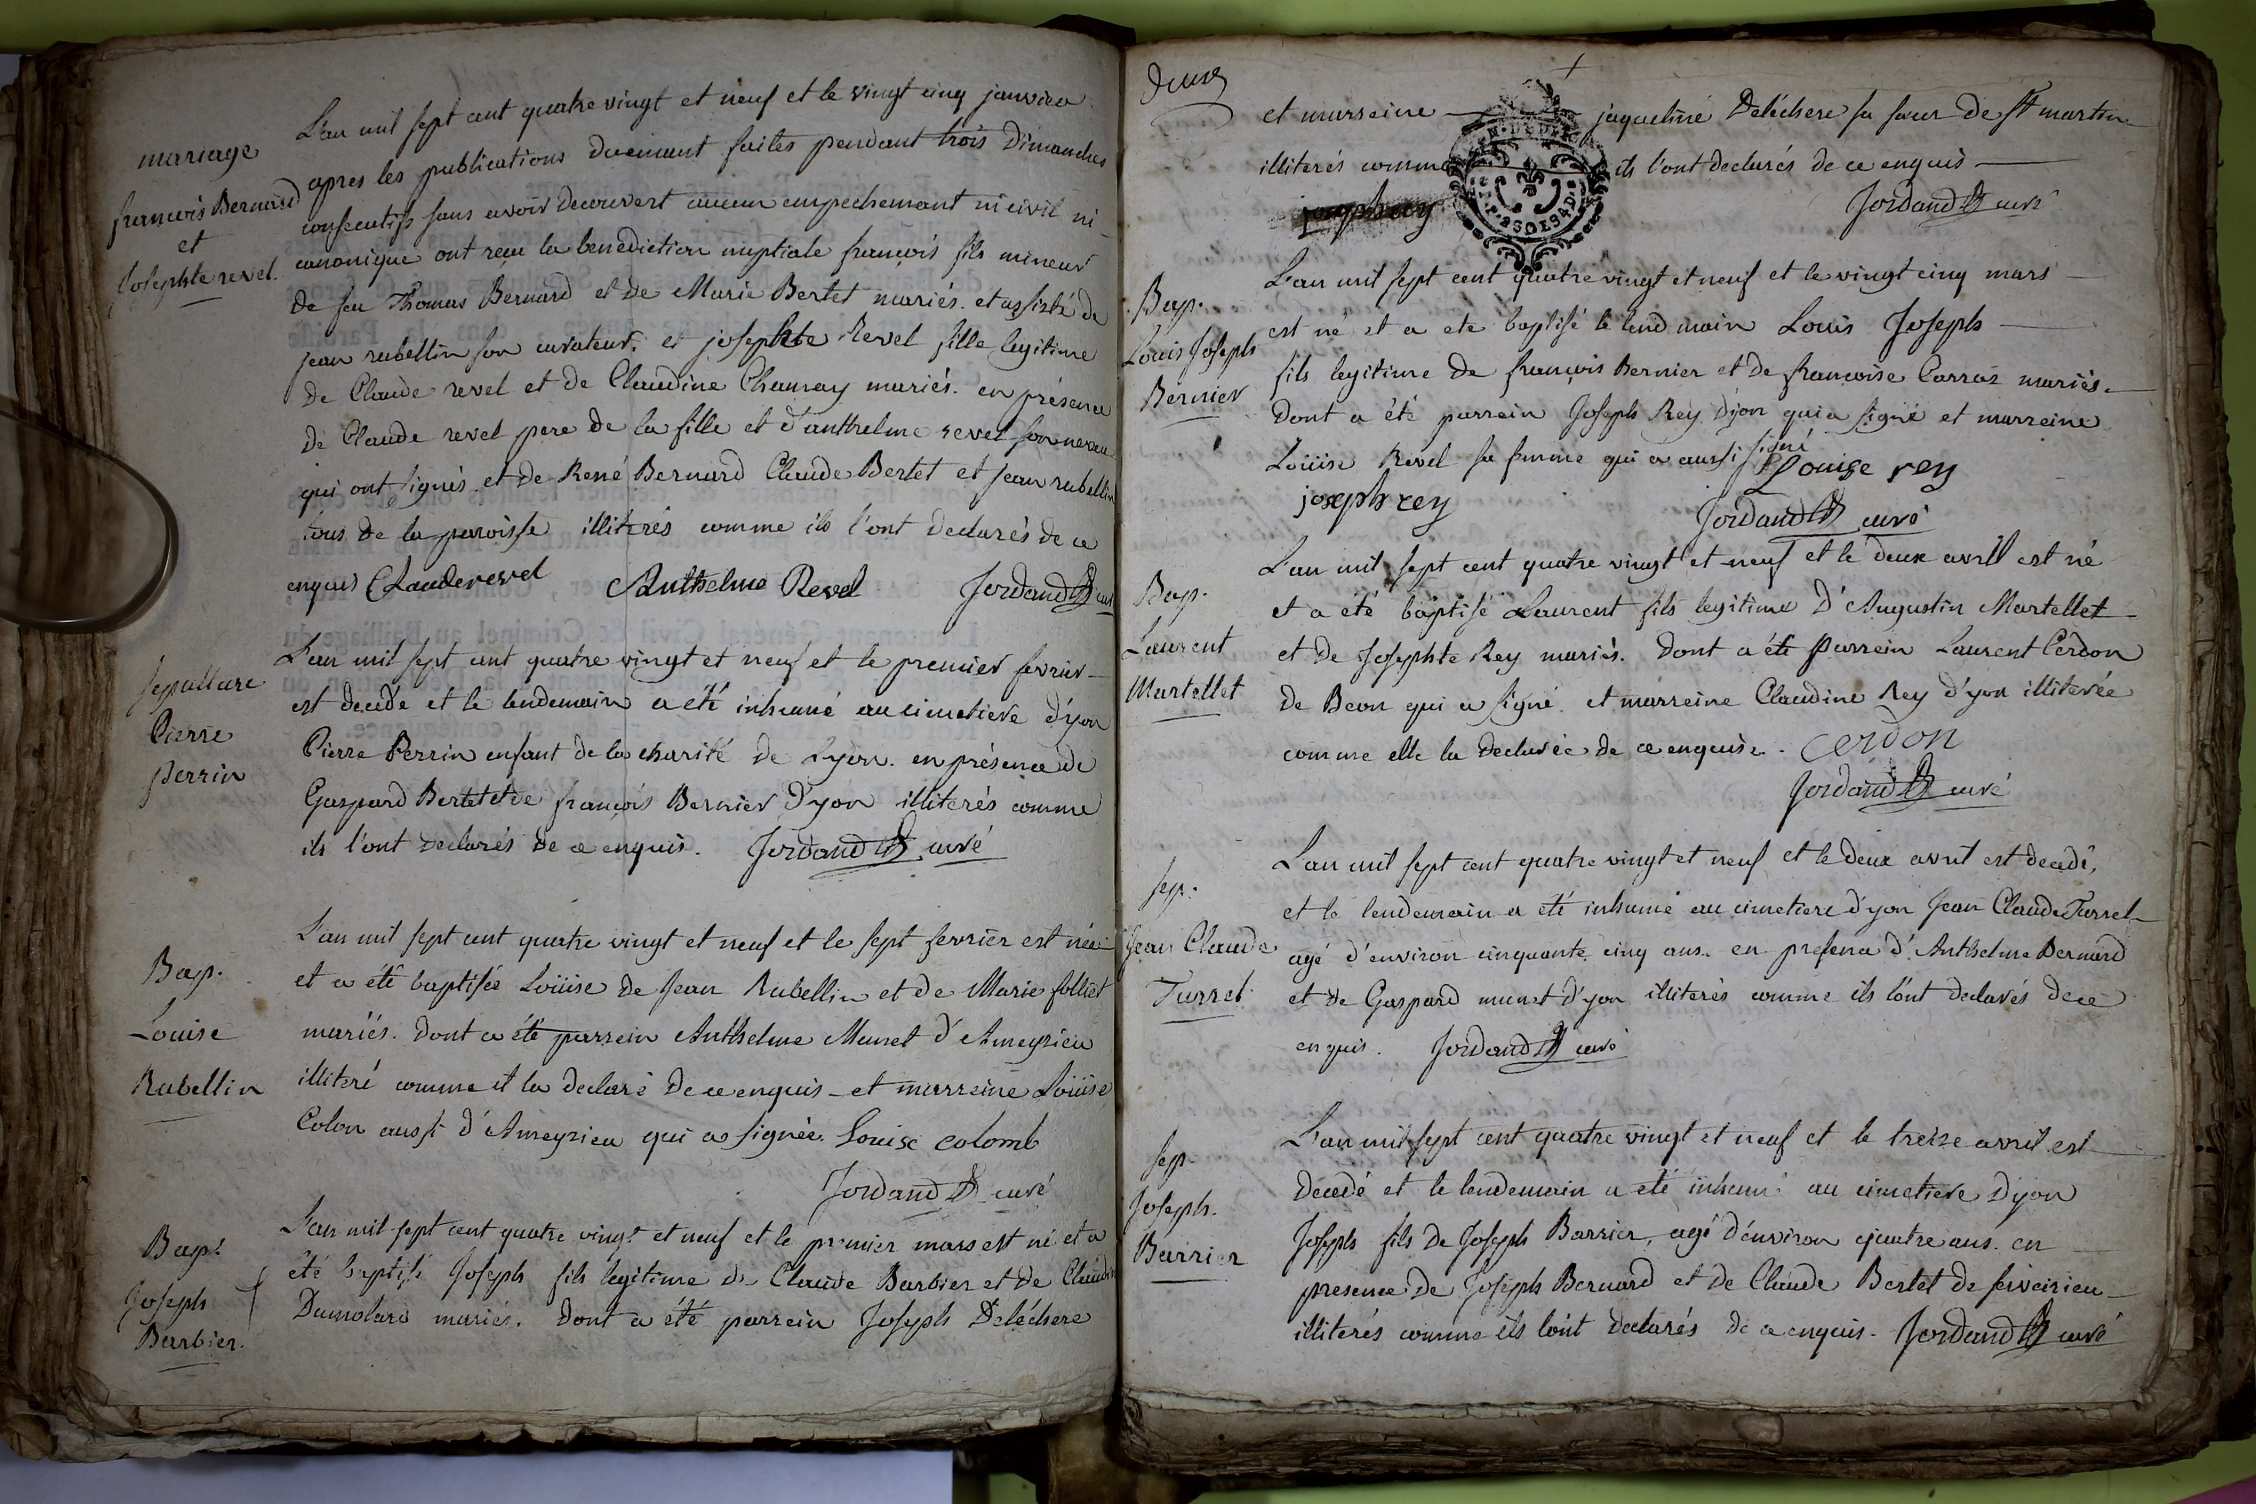 mariage
francois Bernard
et
Josephte revel.
L'an mil sept cent quatre vingt et neuf et le vingt cinq janvier
apres les publications duement faites pendant trois Dimanches
consecutifs sans avoir decouvert aucun empechement ni civil ni
canonique ont recu la benediction nuptiale francois fils mineur
de feu Thomas Bernard et de Marie Bertet mariés. et assisté de
jean rubellin son curateur, et josephte Revel fille legitime
de Claude revel et de Claudine Chaunay mariés. en présence
de Claude revel pere de la fille et d'anthelme revel son neveu
qui ont signés. et de René Bernard Claude Bertet et Jean rubellin
tous de la paroisse illiterés comme ils l'ont declarés de ce
enquis Clauderevel Anthelme Revel Jordand curé
sepulture
Pierre
perrin
L'an mil sept cent quatre vingt et neuf et le premier fevrier
est decédé et le lendemain a été inhumé au cimetiere d'yon
Pierre Perrin enfant de la charité de Lyon. en présence de
Gaspard Bertet et de françois Bernier d'yon illiterés comme
ils l'ont declarés de ce enquis. Jordand curé
Bap.
Louise
Rubellin
L'an mil sept cent quatre vingt et neuf et le sept fevrier est née
et a été baptisée Loüise de Jean Rubellin et de Marie folliet
mariés. Dont a été parrein Anthelme Munet d'Ameyzieu
illiteré comme il la declaré de ce enquis - et marreine Loüise
Colon aussi d'Ameyzieu qui a signée. Louise colomb
Jordand curé
Bap.
Joseph
Barbier.
L'an mil sept cent quatre vingt et neuf et le premier mars est né et a
été baptisé Joseph fils legitime de Claude Barbier et de Claudine
Dumolard mariés. Dont a été parrein Joseph Deléchere
deux
et marreine jaqueline Deléchere sa sœur de st martin
illiterés comme ils l'ont declarés de ce enquis
josephrey
Jordand curé
Bap.
Louis Joseph
Bernier
L'an mil sept cent quatre vingt et neuf et le vingt cinq mars
est né et a ete baptisé le lend main Louis Joseph
fils legitime de françois Bernier et de francoise Carraz mariés.
Dont a été parrein Joseph Rey d'yon qui a signé et marreine
Loüise Revel sa femme qui a aussi signé
Louise rey
joseph rey
Jordand curé
Bap.
Laurent
Martellet
L'an mil sept cent quatre vingt et neuf et le deux avril est né
et a été baptisé Laurent fils legitime d'Augustin Martellet
et de Josephte Rey mariés. Dont a été parrein Laurent Cerdon
de Beon qui a signé. et marreine Claudine Rey d'yon illiterée
comme elle la declarée de ce enquise. Cerdon
Jordand curé
sep.
Jean Claude
Turrel.
L'an mil sept cent quatre vingt et neuf et le deux avril est decedé,
et le lendemain a été inhumé au cimetiere d'yon Jean Claude Turrel
agé d'environ cinquante cinq ans. en presence d'Anthelme Bernard
et de Gaspard munet d'yon illiterés comme ils l'ont declarés de ce
enquis. Jordand curé
sep.
Joseph.
Barrier
L'an mil sept cent quatre vingt et neuf et le treize avril est
decedé et le lendemain a été inhumé au cimetiere d'yon
Joseph fils de Joseph Barrier, agé d'environ quatre ans. en
presence de Joseph Bernard et de Claude Bertet de
illiterés comme ils l'ont declarés de ce enquis. Jordand curé